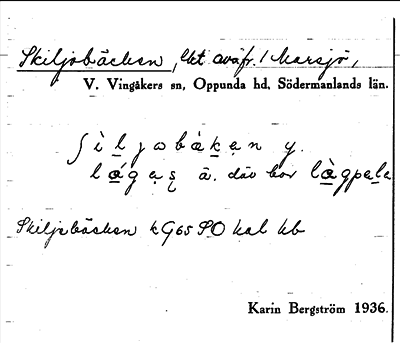 Skiljobäcken, lht avsfr. 1 Marsjö,
V. Vingåkers sn, Oppunda hd, Södermanlands län.
ʃìljωbàkạn y.
lǻgạs ä. där bor làgpạlạ
Skiljebäcken k G65 SO kal kb
Karin Bergström 1936.